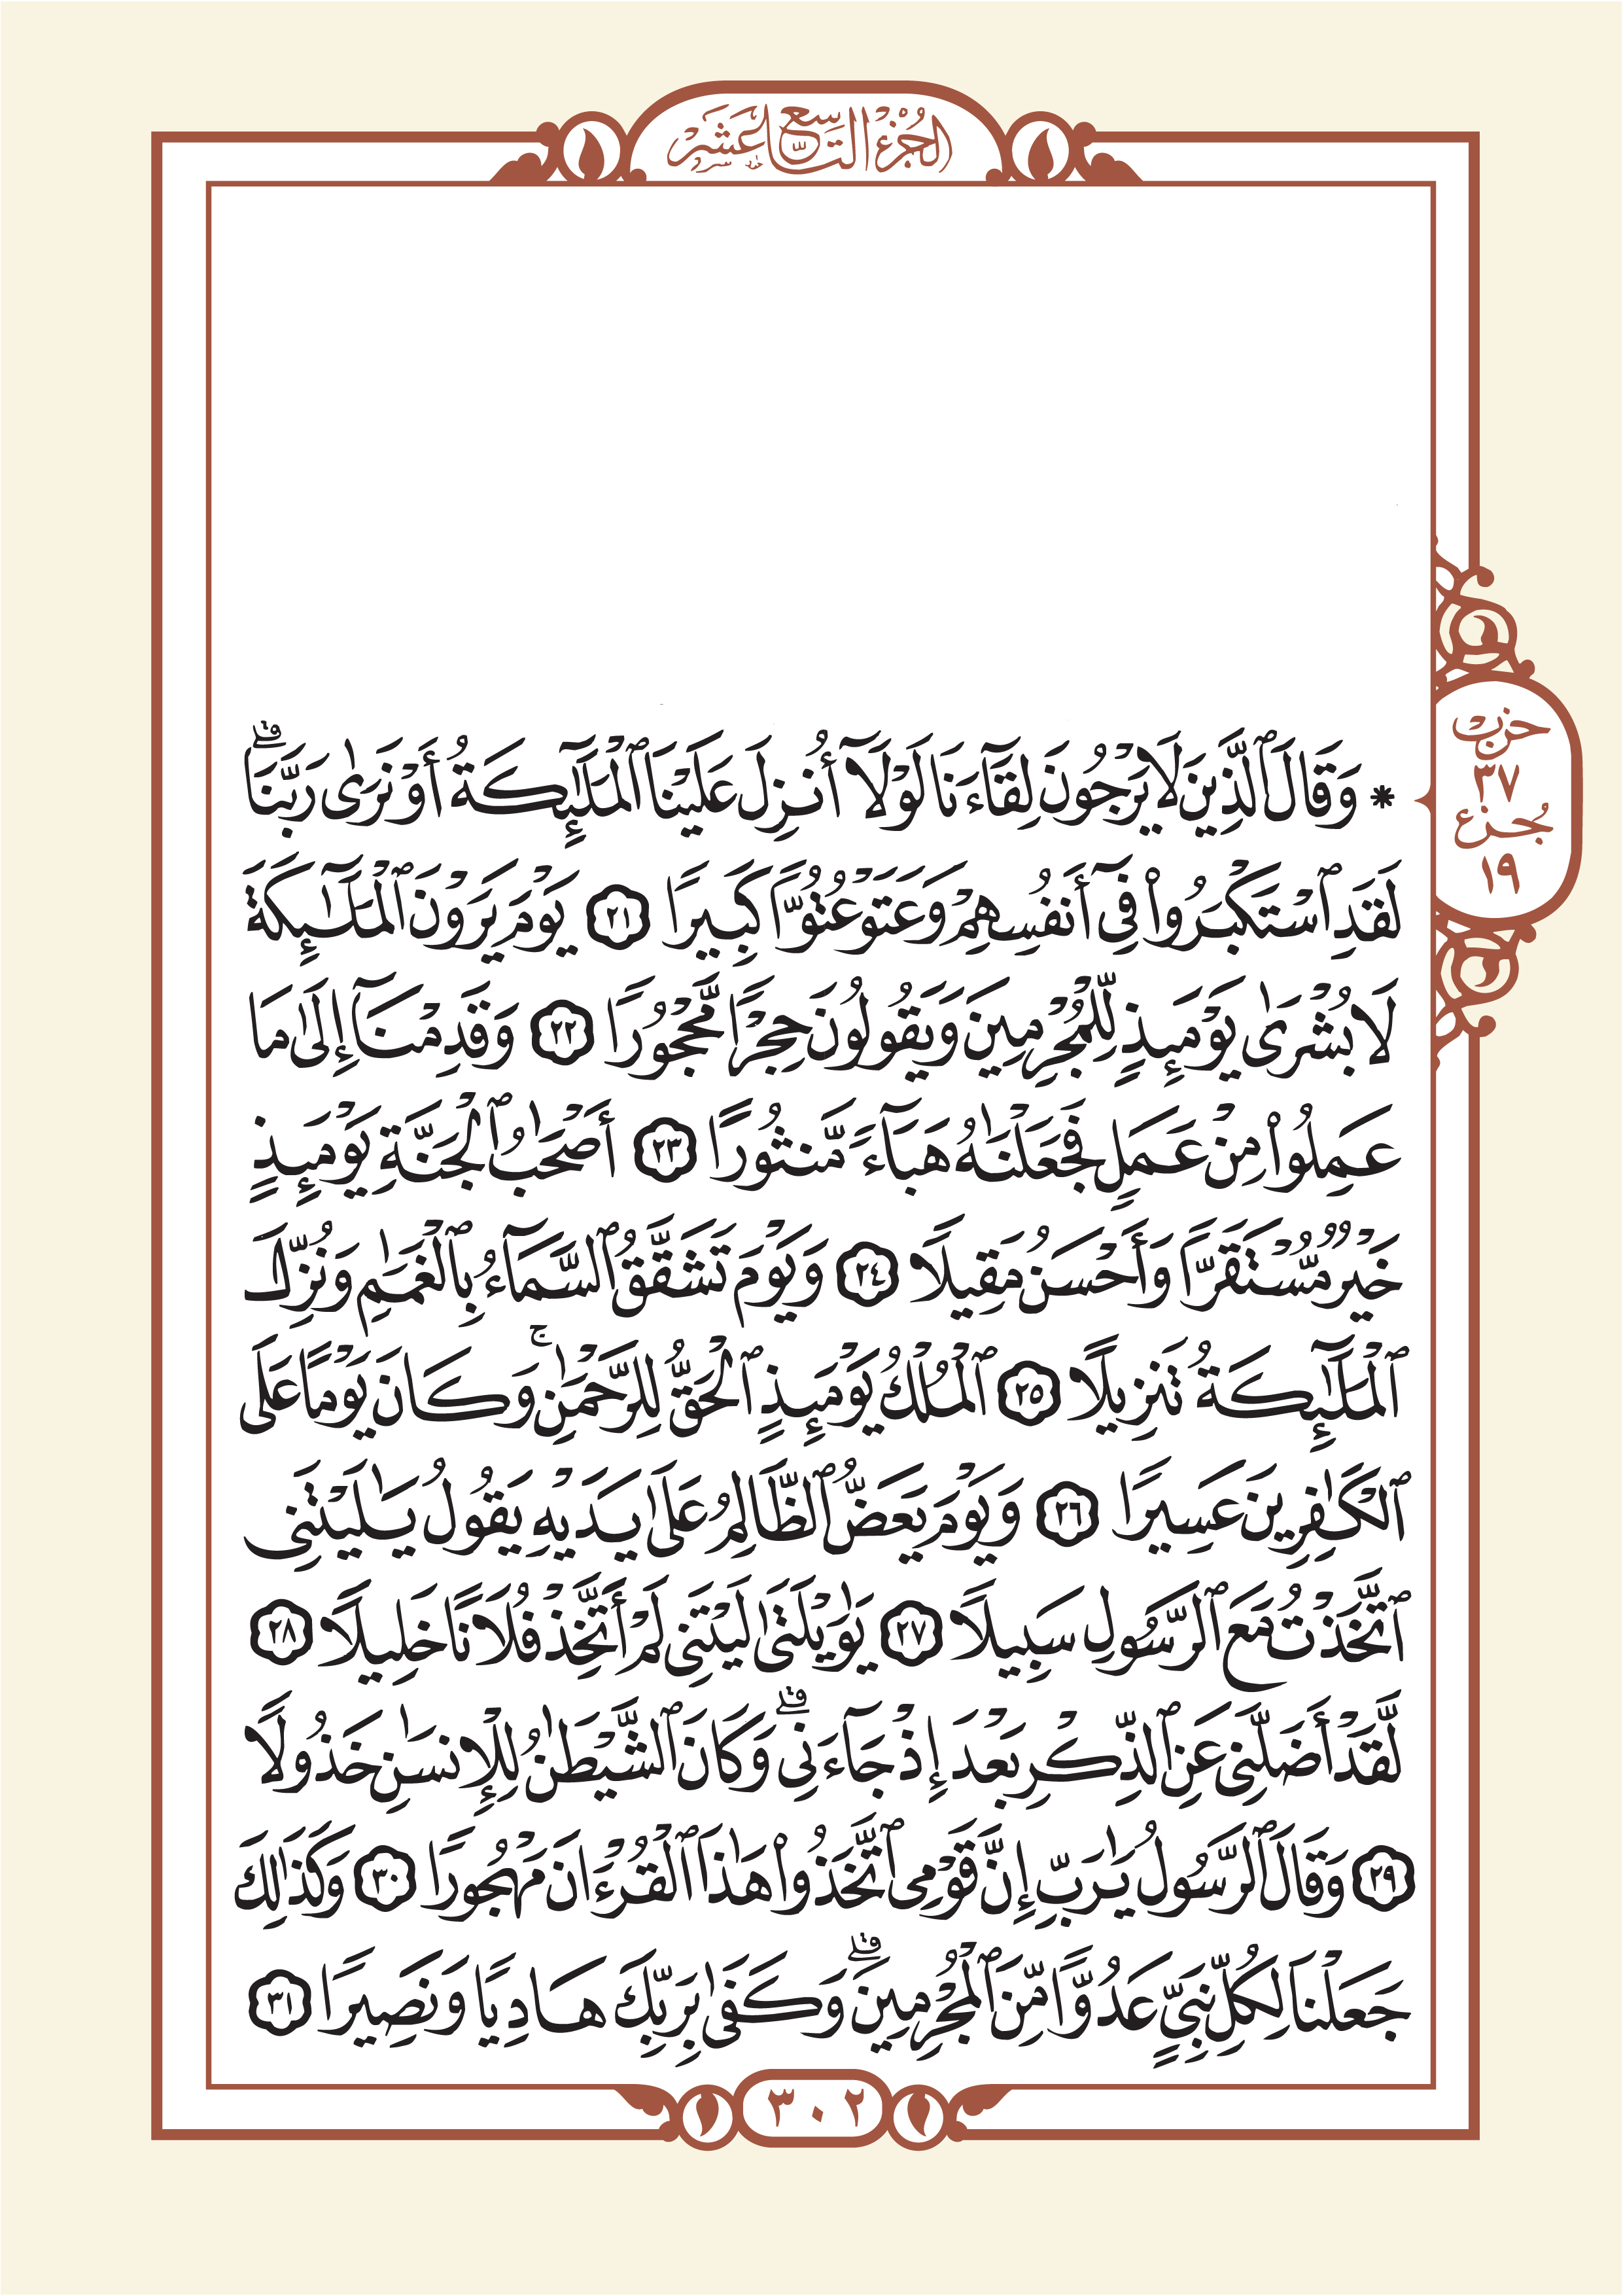 الجزء التاسع عشر
* وَقَالَ ٱلَّذِينَ لَا يَرْجُونَ لِقَآءَنَا لَوْلَآ أُنزِلَ عَلَيْنَا ٱلْمَلَٰٓئِكَةُ أَوْ نَرَىٰ رَبَّنَاۗ
لَقَدِ ٱسْتَكْبَرُوا۟ فِىٓ أَنفُسِهِمْ وَعَتَوْ عُتُوًّا كَبِيرًا ٢١ يَوْمَ يَرَوْنَ ٱلْمَلَٰٓئِكَةَ
لَا بُشْرَىٰ يَوْمَئِذٍ لِّلْمُجْرِمِينَ وَيَقُولُونَ حِجْرًا مَّحْجُورًا ٢٢ وَقَدِمْنَآ إِلَىٰ مَا
عَمِلُوا۟ مِنْ عَمَلٍ فَجَعَلْنَٰهُ هَبَآءً مَّنثُورًا ٢٣ أَصْحَٰبُ ٱلْجَنَّةِ يَوْمَئِذٍ
خَيْرٌ مُّسْتَقَرًّا وَأَحْسَنُ مَقِيلًا ٢٤ وَيَوْمَ تَشَقَّقُ ٱلسَّمَآءُ بِٱلْغَمَٰمِ وَنُزِّلَ
ٱلْمَلَٰٓئِكَةُ تَنزِيلًا ٢٥ ٱلْمُلْكُ يَوْمَئِذٍ ٱلْحَقُّ لِلرَّحْمَٰنِۚ وَكَانَ يَوْمًا عَلَى
ٱلْكَٰفِرِينَ عَسِيرًا ٢٦ وَيَوْمَ يَعَضُّ ٱلظَّالِمُ عَلَىٰ يَدَيْهِ يَقُولُ يَٰلَيْتَنِى
ٱتَّخَذْتُ مَعَ ٱلرَّسُولِ سَبِيلًا ٢٧ يَٰوَيْلَتَىٰ لَيْتَنِى لَمْ أَتَّخِذْ فُلَانًا خَلِيلًا ٢٨
لَّقَدْ أَضَلَّنِى عَنِ ٱلذِّكْرِ بَعْدَ إِذْ جَآءَنِىۗ وَكَانَ ٱلشَّيْطَٰنُ لِلْإِنسَٰنِ خَذُولًا
٢٩ وَقَالَ ٱلرَّسُولُ يَٰرَبِّ إِنَّ قَوْمِى ٱتَّخَذُوا۟ هَٰذَا ٱلْقُرْءَانَ مَهْجُورًا ٣٠ وَكَذَٰلِكَ
جَعَلْنَا لِكُلِّ نَبِىٍّ عَدُوًّا مِّنَ ٱلْمُجْرِمِينَۗ وَكَفَىٰ بِرَبِّكَ هَادِيًا وَنَصِيرًا ٣١
حزب
٣٧
جزء
١٩
٣٠٢